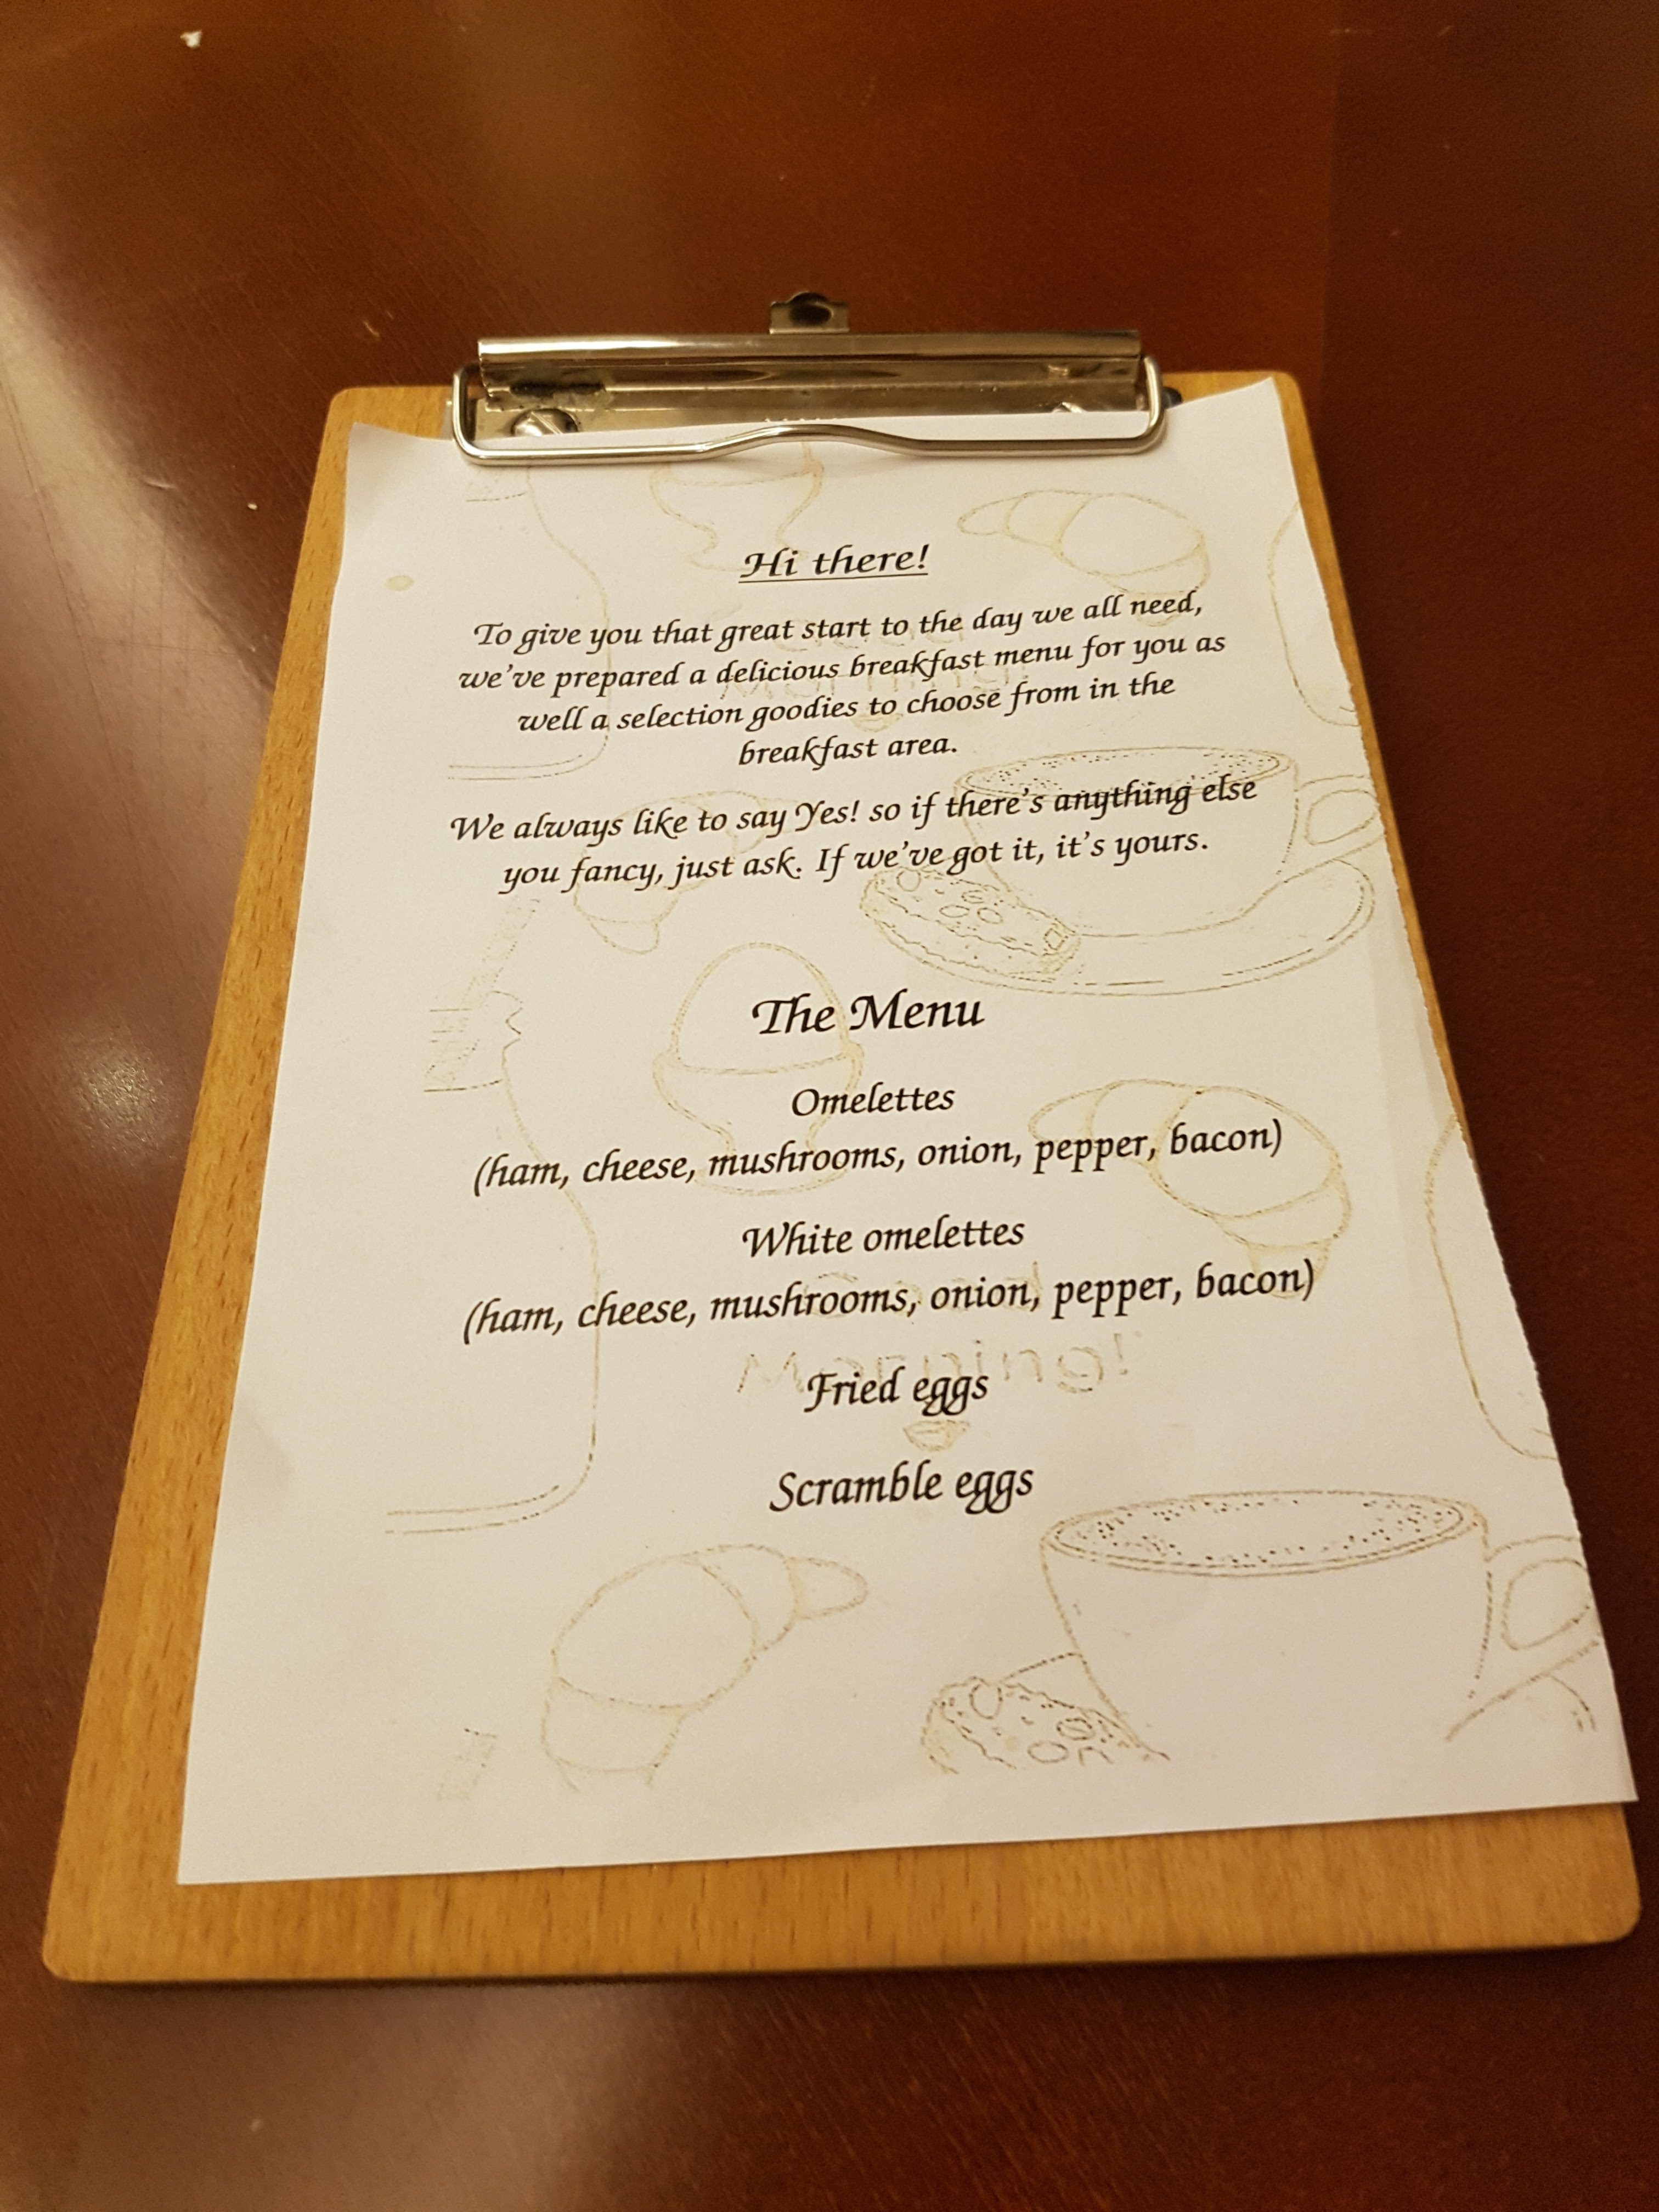 Hi there!
To give you that great start to the day we all need,
we've prepared a delicious breakfast menu for you as
well a selection goodies to choose from in the
breakfast area.
We always like to say Yes! so if there's anything else
you fancy, just ask. If we've got it, it's yours.
The Menu
Omelettes
(ham, cheese, mushrooms, onion, pepper, bacon)
White omelettes
(ham, cheese, mushrooms, onion, pepper, bacon)
Morning!
Fried eggs
Scramble eggs